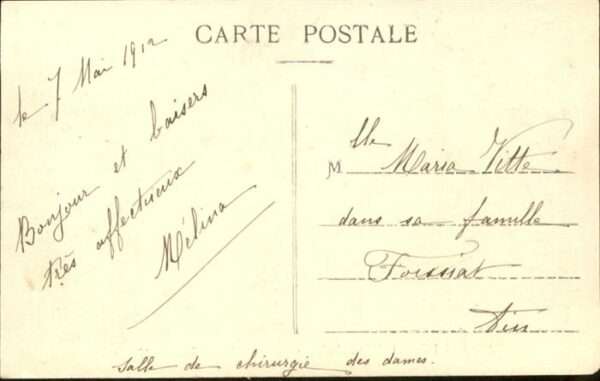 CARTE POSTALE
le 7 Mai 1912
Bonjour et baisers
très affectueux
Mélina
Mlle Maria Vitte
dans sa famille
Foissiat
Ain
Salle de chirurgie des dames.